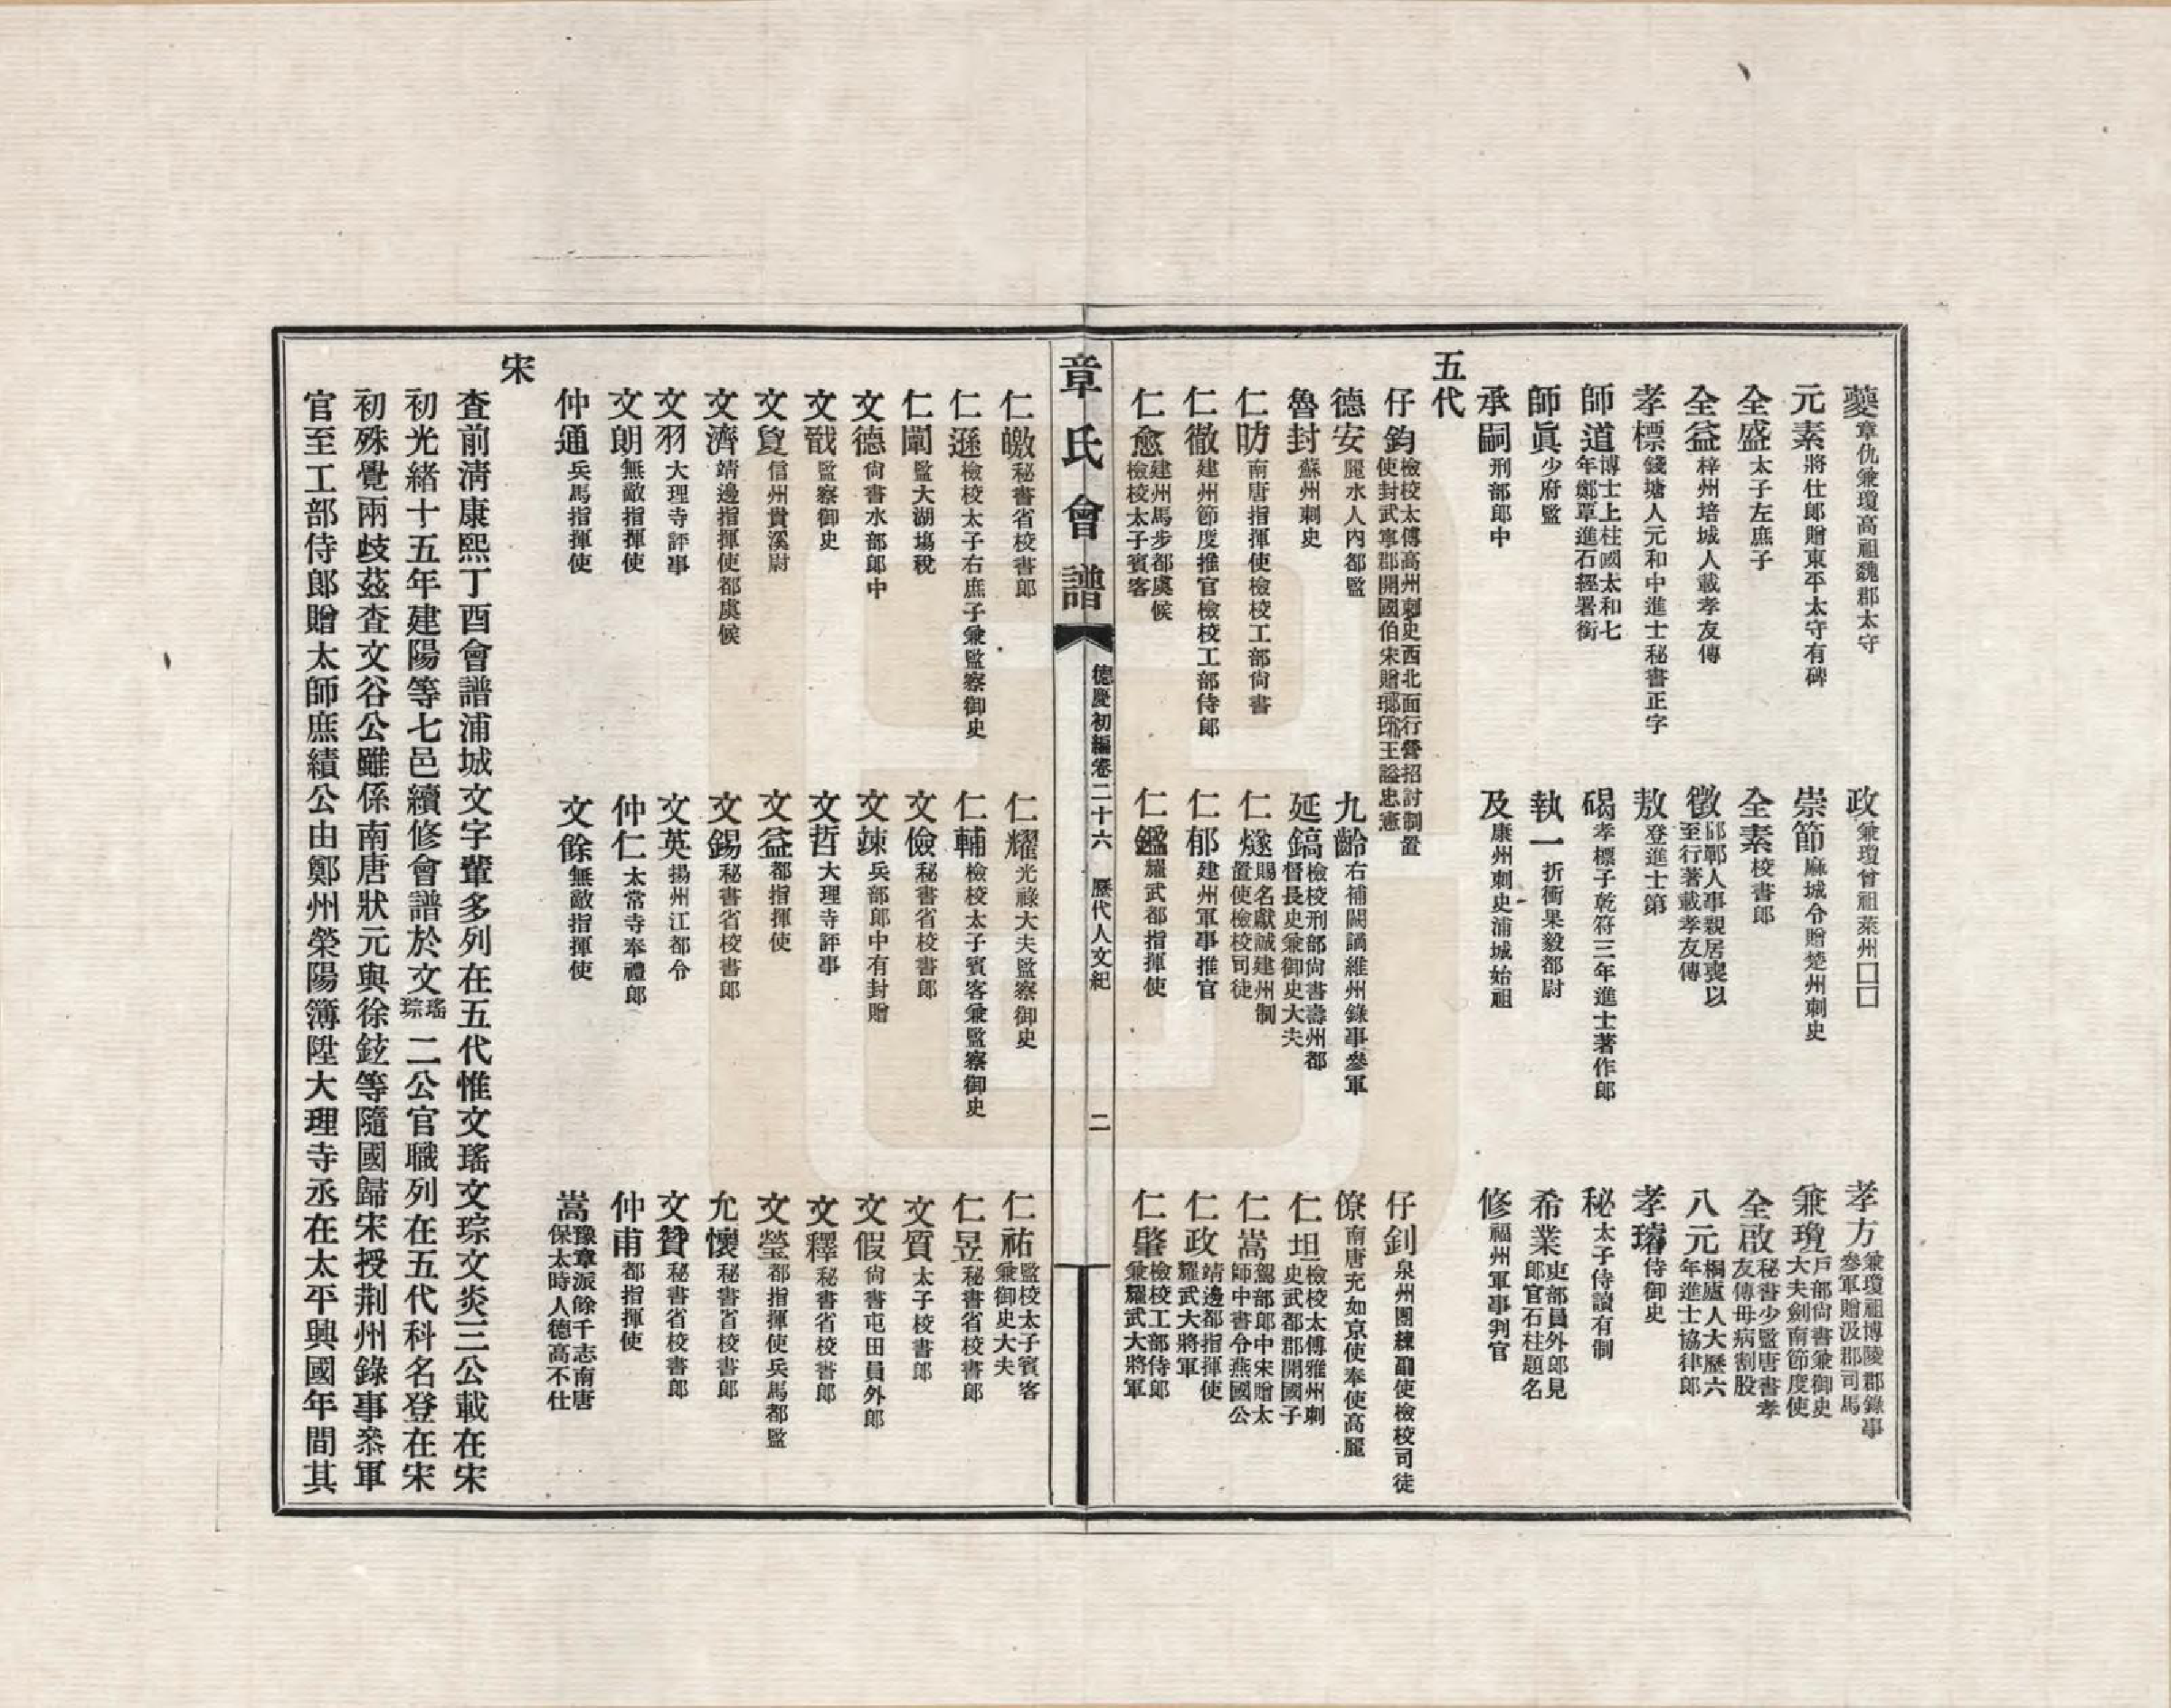 蘷章仇兼瓊高祖魏郡太守
政兼瓊曾祖萊州□□
孝方兼瓊祖博陵郡錄事參軍贈汲郡司馬
元素將仕郎贈東平太守有碑
崇節麻城令贈楚州刺史
兼瓊戶部尚書兼御史大夫劍南節度使
全盛太子左庶子
全素校書郎
全啟秘書少監唐書孝友傳母病割股
全益梓州培城人載孝友傳
徵邯鄲人事親居喪以至行著載孝友傳
八元桐廬人大歷六年進士協律郎
孝標錢塘人元和中進士秘書正字
敖登進士第
孝璿侍御史
師道博士上柱國太和七年鄭覃進石經署銜
碣孝標子乾符三年進士著作郎
秘太子侍讀有制
師眞少府監
執一折衝果毅都尉
希業吏部員外郎見郎官石柱題名
承嗣刑部郎中
及康州刺史浦城始祖
修福州軍事判官
五代
仔鈞檢校太傅高州刺史西北面行營招討制置使封武寧郡開國伯宋贈瑯琊王諡忠憲
仔釗泉州團練副使檢校司徒
德安麗水人內都監
九齡右補闕謫維州錄事參軍
僚南唐充如京使奉使高麗
魯封蘇州刺史
延鎬檢校刑部尚書壽州都督長史兼御史大夫
仁坦檢校太傅雅州刺史武都郡開國子
仁昉南唐指揮使檢校工部尚書
仁燧賜名獻誠建州制置使檢校司徒
仁嵩駕部郎中宋贈太師中書令燕國公
仁徹建州節度推官檢校工部侍郎
仁郁建州軍事推官
仁政靖邊都指揮使耀武大將軍
仁愈建州馬步都虞候檢校太子賓客
仁鑑耀武都指揮使
仁肇檢校工部侍郎兼耀武大將軍
章氏會譜
德慶初編卷二十六 歷代人文紀
二
仁皦秘書省校書郎
仁耀光祿大夫監察御史
仁祐監校太子賓客兼御史大夫
仁遜檢校太子右庶子兼監察御史
仁輔檢校太子賓客兼監察御史
仁昱秘書省校書郎
仁闈監大湖塲稅
文儉秘書省校書郎
文質太子校書郎
文德尚書水部郎中
文竦兵部郎中有封贈
文假尚書屯田員外郎
文戩監察御史
文哲大理寺評事
文釋秘書省校書郎
文敻信州貴溪尉
文益都指揮使
文瑩都指揮使兵馬都監
文濟靖邊指揮使都虞候
文錫秘書省校書郎
允懷秘書省校書郎
文羽大理寺評事
文英揚州江都令
文贊秘書省校書郎
文朗無敵指揮使
仲仁太常寺奉禮郎
仲甫都指揮使
仲通兵馬指揮使
文餘無敵指揮使
嵩豫章派餘干志南唐保太時人德高不仕
宋
查前淸康熙丁酉會譜浦城文字輩多列在五代惟文瑤文琮文炎三公載在宋
初光緒十五年建陽等七邑續修會譜於文瑤琮二公官職列在五代科名登在宋
初殊覺兩歧茲查文谷公雖係南唐狀元與徐鉉等隨國歸宋授荆州錄事叅軍
官至工部侍郎贈太師庶績公由鄭州滎陽簿陞大理寺丞在太平興國年間其